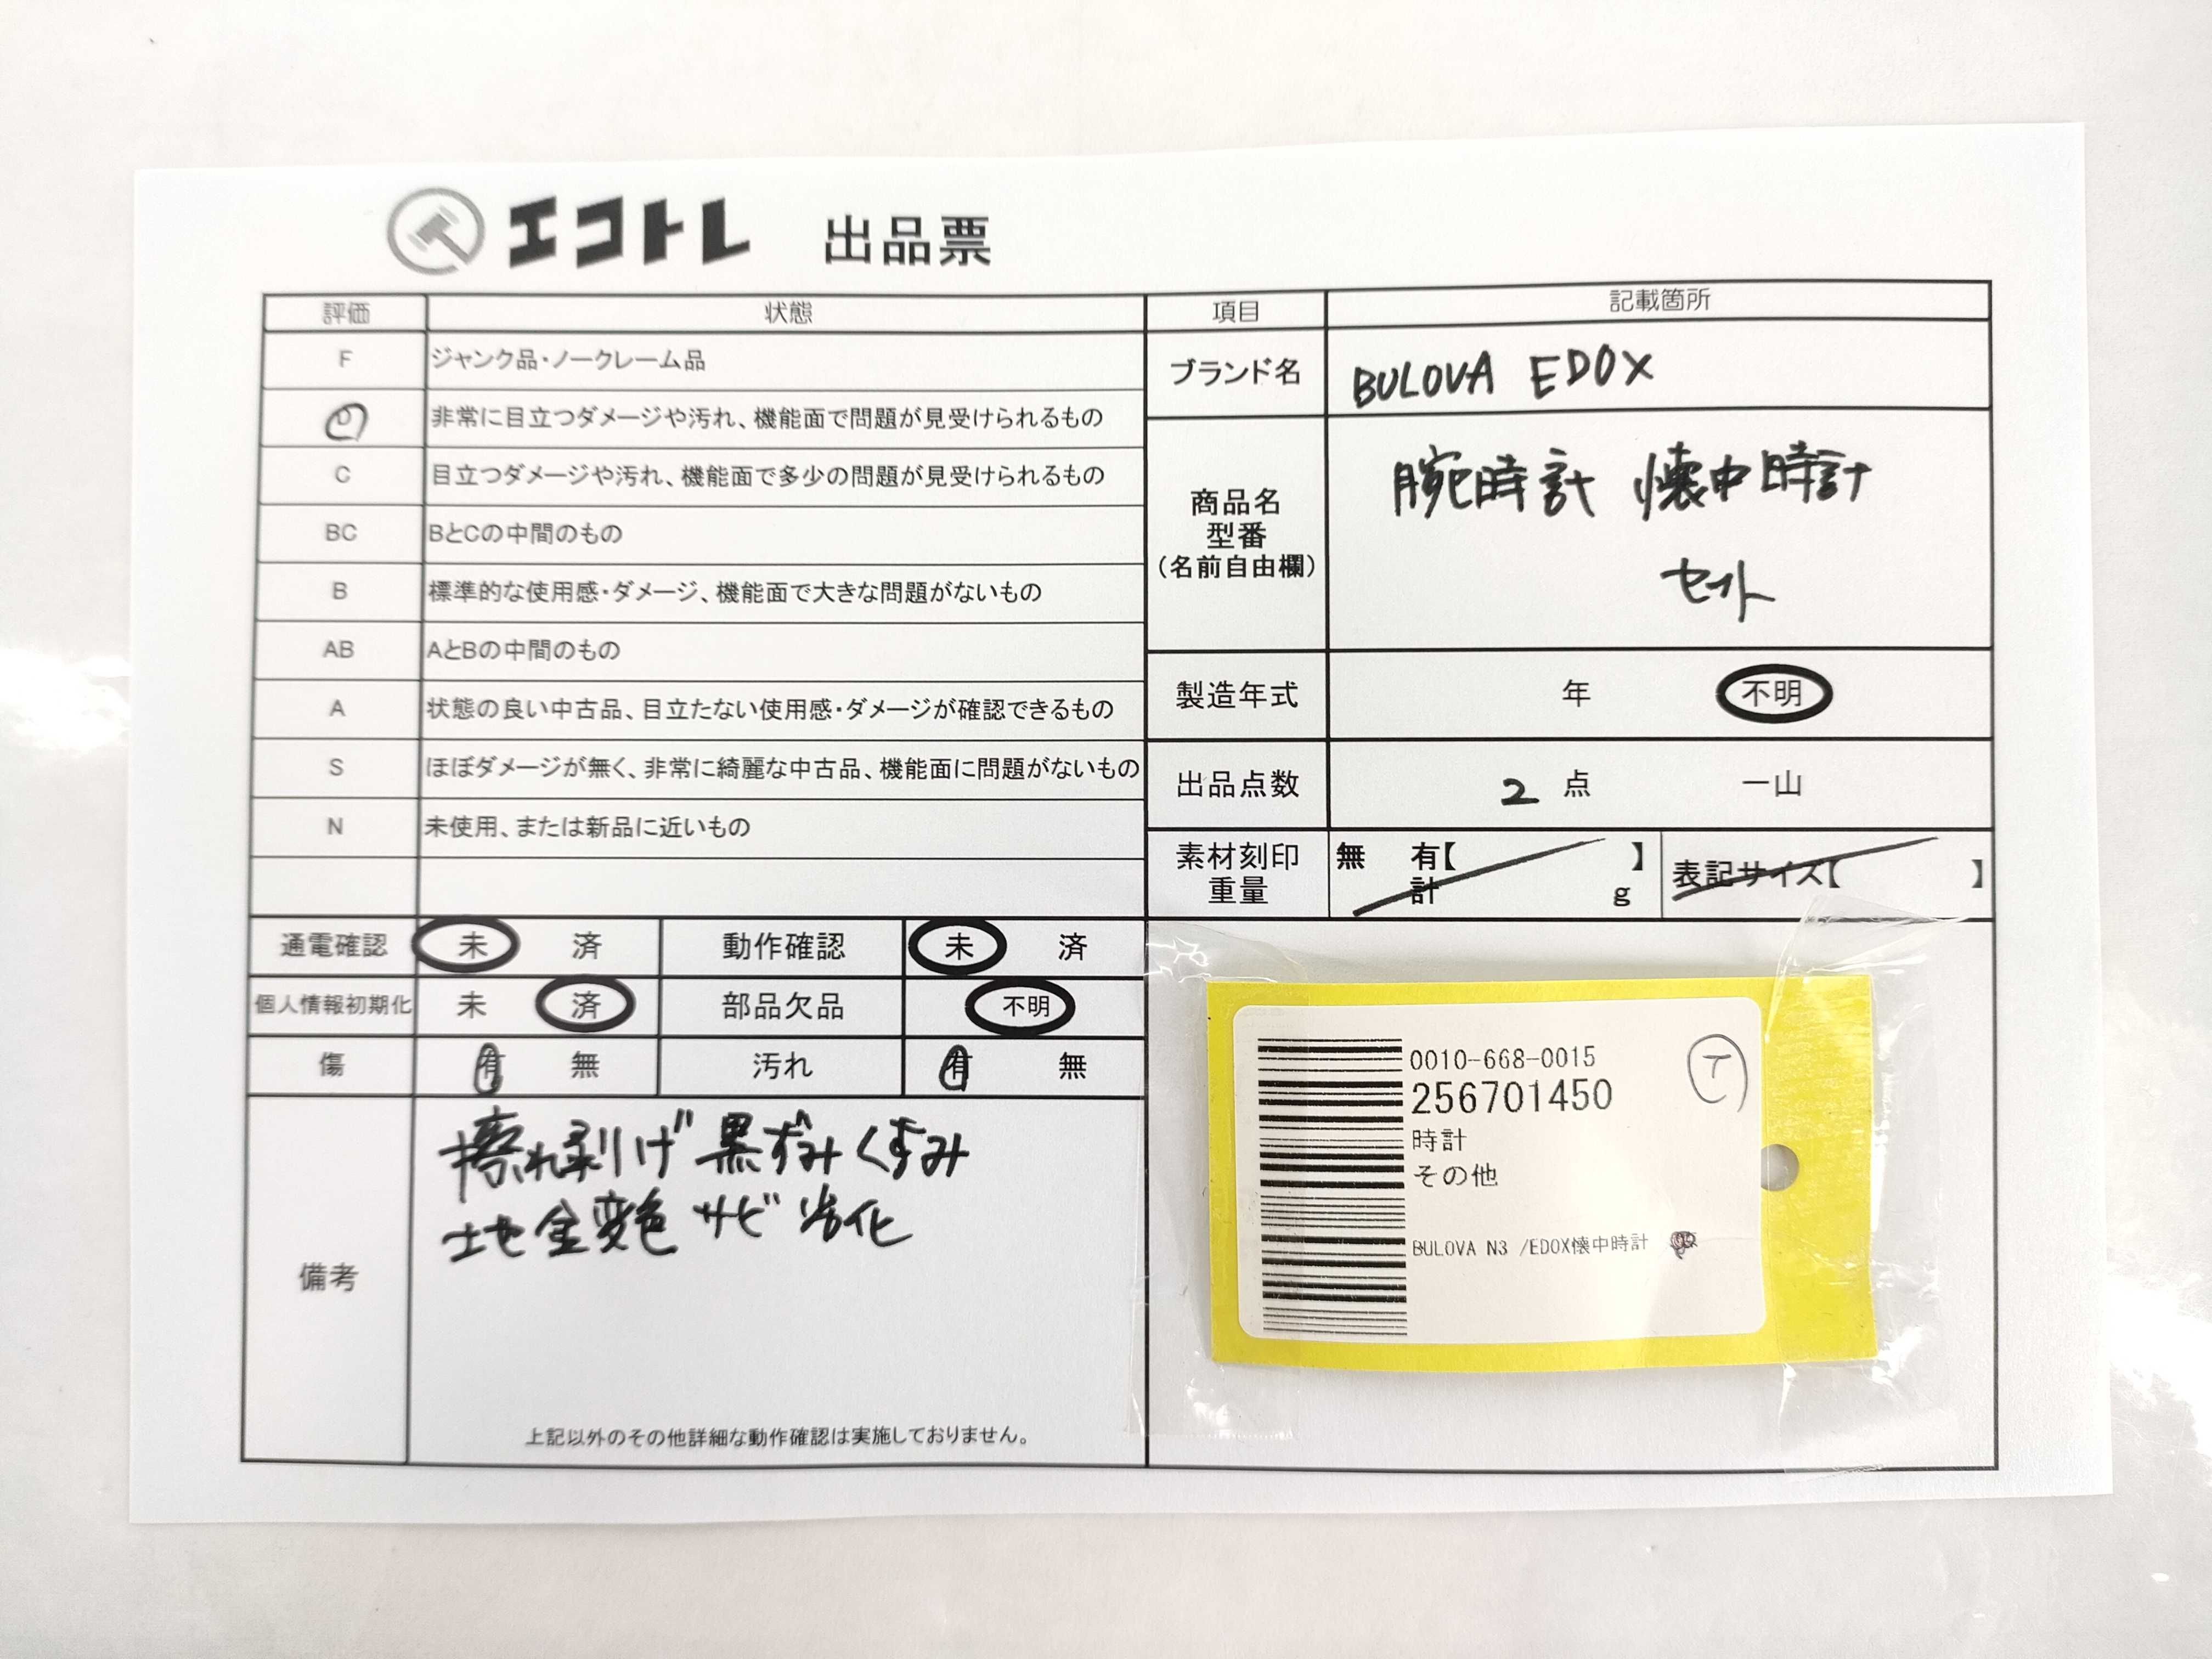 エコトレ 出品票
評価 状態
F ジャンク品・ノークレーム品
D 非常に目立つダメージや汚れ、機能面で問題が見受けられるもの
C 目立つダメージや汚れ、機能面で多少の問題が見受けられるもの
BC BとCの中間のもの
B 標準的な使用感・ダメージ、機能面で大きな問題がないもの
AB AとBの中間のもの
A 状態の良い中古品、目立たない使用感・ダメージが確認できるもの
S ほぼダメージが無く、非常に綺麗な中古品、機能面に問題がないもの
N 未使用、または新品に近いもの
通電確認 未 済 動作確認 未 済
個人情報初期化 未 済 部品欠品 不明
傷 有 無 汚れ 有 無
備考
擦れ剥げ 黒ずみくすみ
地金変色 サビ 劣化
上記以外のその他詳細な動作確認は実施しておりません。
項目 記載箇所
ブランド名 BULOVA EDOX
商品名
型番
(名前自由欄)
腕時計 懐中時計
セット
製造年式 年 不明
出品点数 2 点 一山
素材刻印
重量
無 有【 】
計 g
表記サイズ【 】
0010-668-0015
256701450
時計
その他
BULOVA N3 /EDOX懐中時計
T